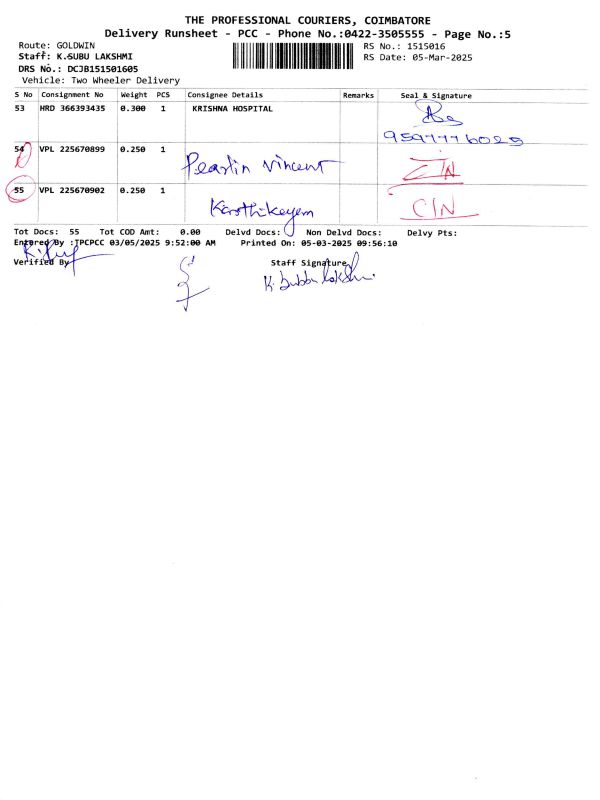 THE PROFESSIONAL COURIERS, COIMBATORE
Delivery Runsheet - PCC - Phone No.:0422-3505555 - Page No.:5
Route: GOLDWIN RS No.: 1515016
Staff: K.SUBU LAKSHMI RS Date: 05-Mar-2025
DRS No.: DCJB151501605
Vehicle: Two Wheeler Delivery
S No Consignment No Weight PCS Consignee Details Remarks Seal & Signature
53 HRD 366393435 0.300 1 KRISHNA HOSPITAL
54 VPL 225670899 0.250 1
Pearlin Vincent
55 VPL 225670902 0.250 1
Karthikeyem C/N
Tot Docs: 55 Tot COD Amt: 0.00 Delvd Docs: Non Delvd Docs: Delvy Pts:
Entered By :TPCPCC 03/05/2025 9:52:00 AM Printed On: 05-03-2025 09:56:10
Verified By Staff Signature
K. Subbu lakshmi